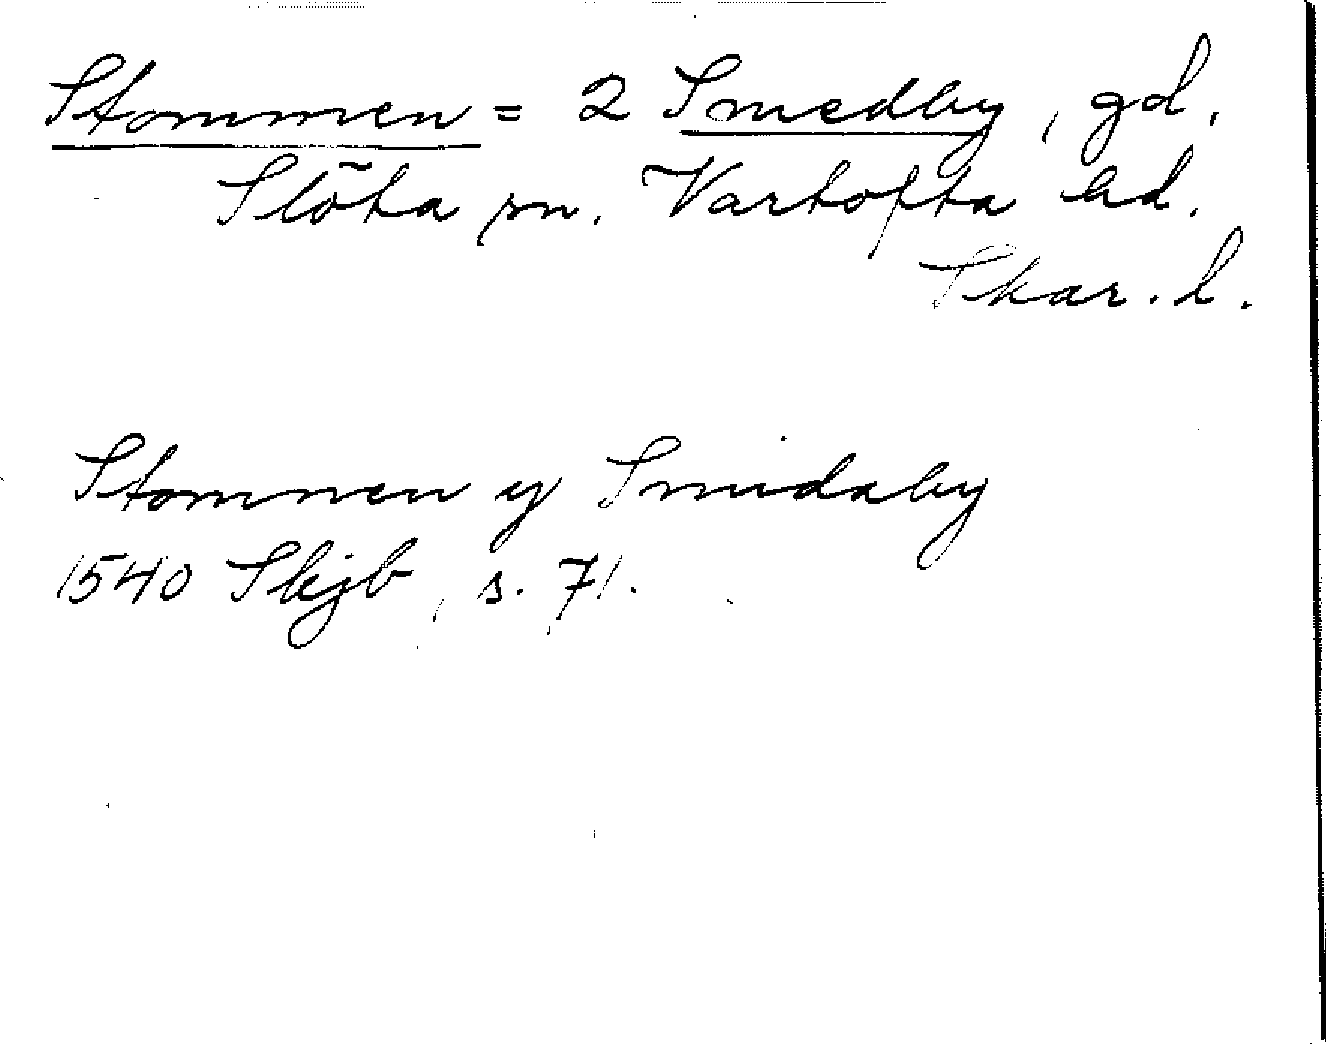 Stommen = 2 Smedby, gd,
Slöta sn. Vartofta hd.
Skar. l.
Stommen y Smidaby
1540 Skjb, s. 71.